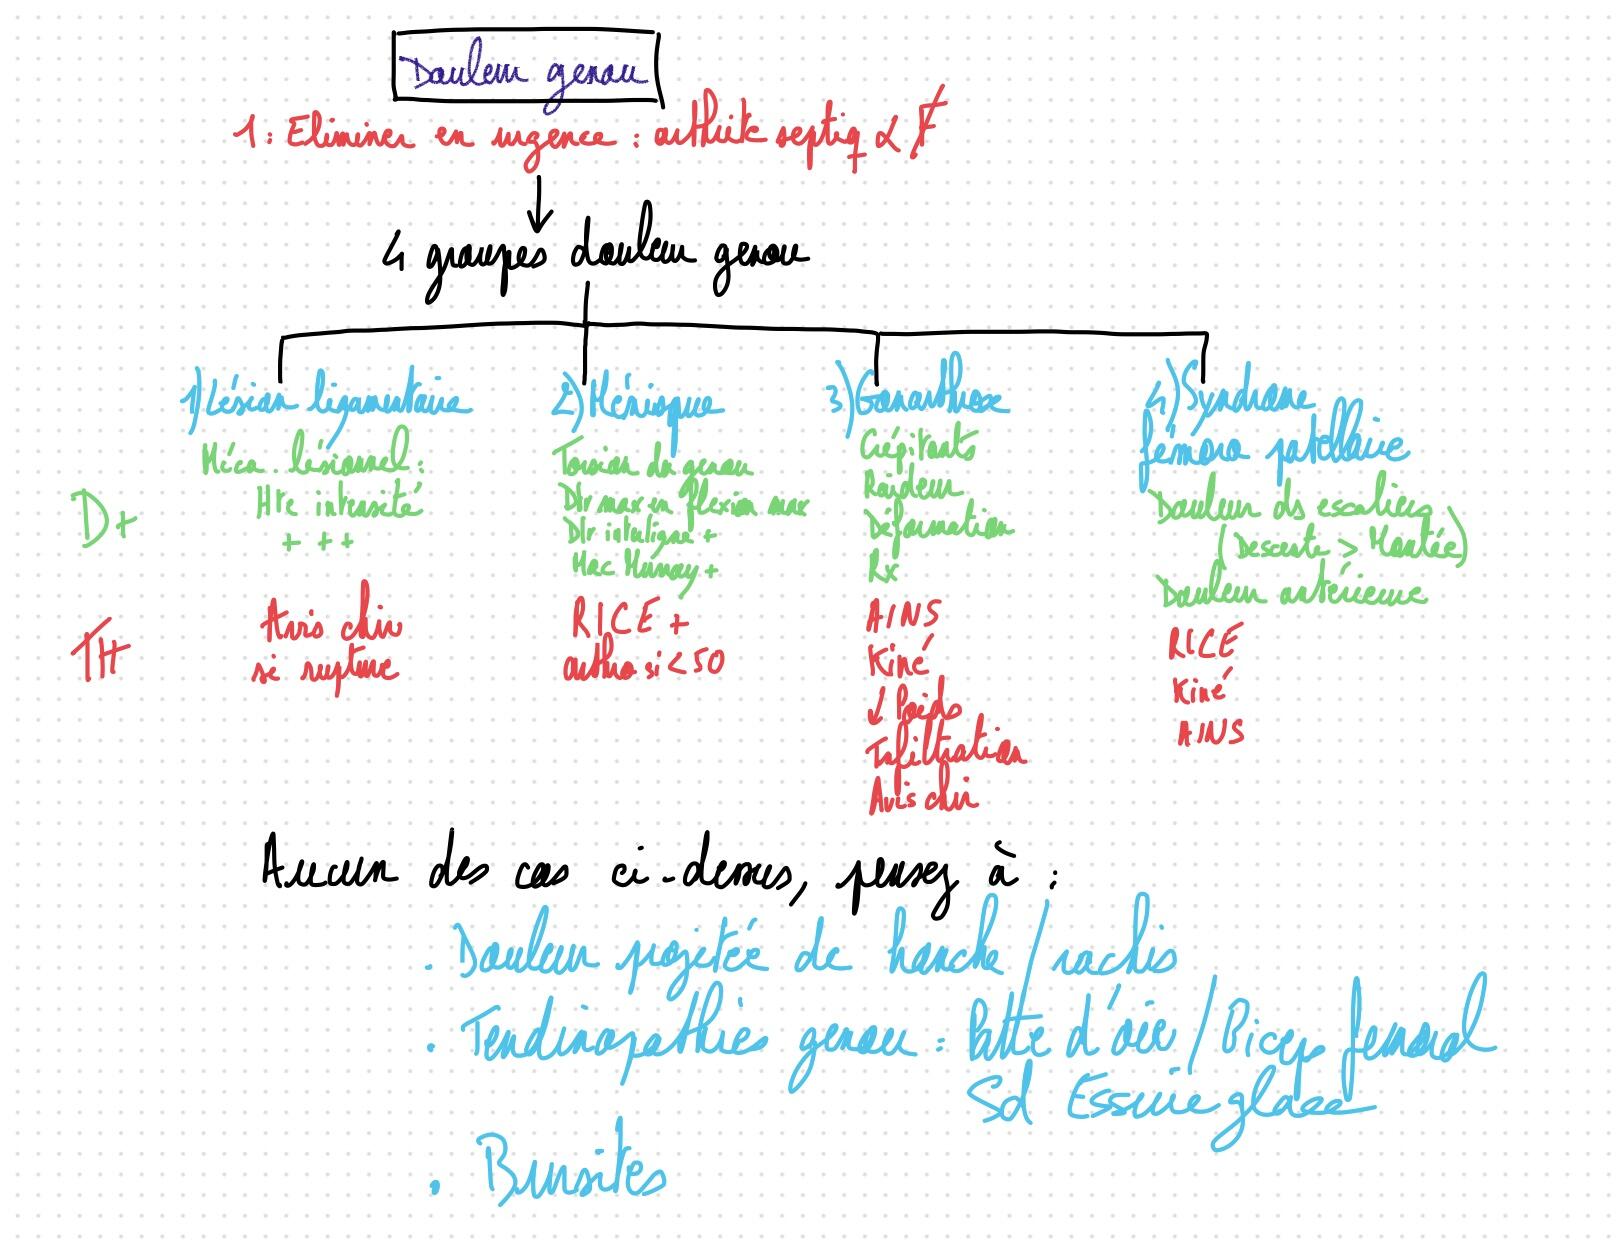 Douleur genou
1: Eliminer en urgence : arthrite septiq & F
4 groupes douleur genou
1) Lésion ligamentaire
2) Ménisque
3) Gonarthrose
4) Syndrome
fémoro patellaire
D+
Méca. lésionnel :
Hte intensité
+ + +
Torsion du genou
Dlr max en flexion max
Dlr interligne +
Mac Murray +
Crépitants
Raideur
Déformation
Rx
Douleur ds escaliers
(Descente > Montée)
Douleur antérieure
TH
Avis chir
si rupture
RICE +
arthro si < 50
AINS
Kiné
↓ Poids
Infiltration
Avis chir
RICE
Kiné
AINS
Aucun des cas ci-dessus, pensez à :
. Douleur projetée de hanche / rachis
. Tendinopathies genou : Patte d'oie / Biceps femoral
Sd Essuie glace
. Bursites